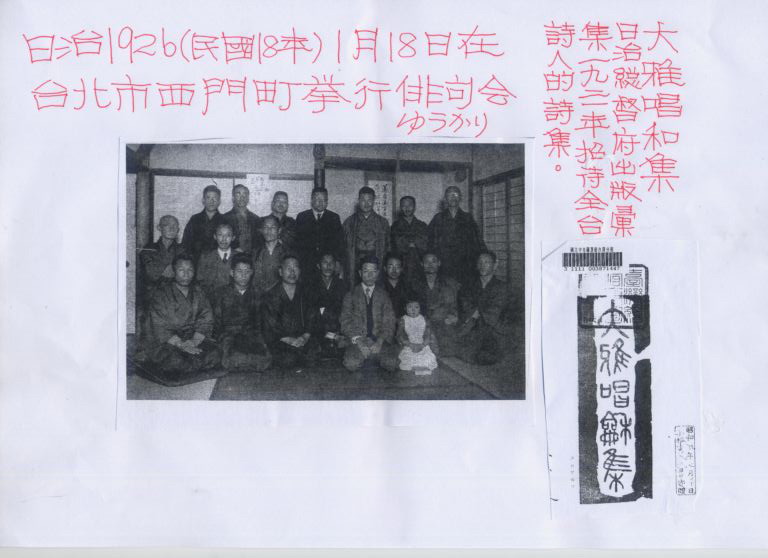 日治1926(民國18本)1月18日在
台北市西門町挙行俳句会
ゆうかり
大雅唱和集
日治総督府出版彙
集一九二一年招待全台
詩人的詩集。
3 1111 003871447
大雅唱龢集